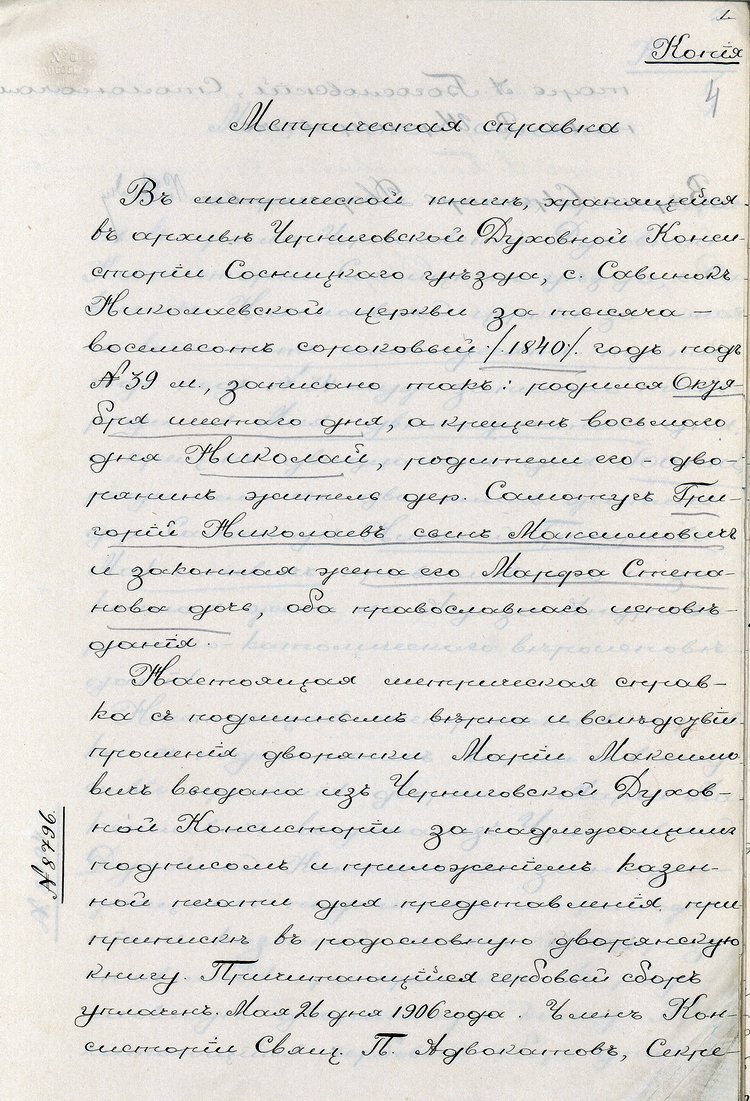 1
Копія
4
Метрическая справка
Въ метрической книгѣ, хранящейся
въ архивѣ Черниговской Духовной Конси-
сторіи Сосницкаго уѣзда, с. Савинокъ
Николаевской церкви за тысяча –
восемьсотъ сороковый /.1840/. годъ подъ
№ 39 м., записано такъ: родился Октя-
бря шестаго дня, а крещенъ восьмаго
дня Николай, родители его – дво-
рянинъ житель дер. Самотугъ Гри-
горій Николаевъ сынъ Максимовичъ
и законная жена его Марфа Степа-
нова дочь, оба православнаго исповѣ-
данія.
Настоящая метрическая справ-
ка съ подлиннымъ вѣрна и вслѣдствіи
прошенія дворянки Маріи Максимо
вичъ выдана изъ Черниговской Духов-
ной Консисторіи за надлежащимъ
подписомъ и приложеніемъ казен-
ной печати для представленія при
припискѣ въ родословную дворянскую
книгу. Причитающійся гербовый сборъ
уплаченъ. Мая 26 дня 1906 года. Членъ Кон-
систоріи Свящ. П. Адвокатовъ, Секре-
№ 8796